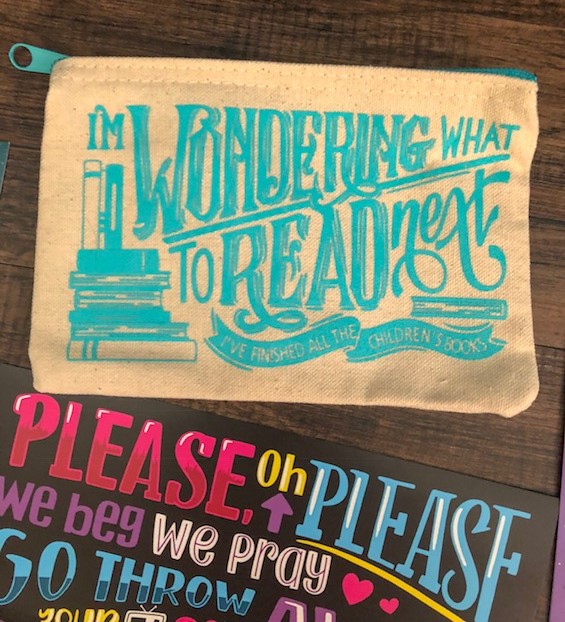 I'M WONDERING WHAT
TO READ next
I'VE FINISHED ALL THE CHILDREN'S BOOKS
PLEASE, Oh PLEASE
we beg we pray
GO THROW
YOUR